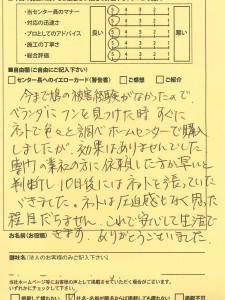 ・当センター長のマナー
・対応の迅速さ
・プロとしてのアドバイス
・施工の丁寧さ
・総合評価
良い
悪い
5 4 3 2 1
5 4 3 2 1
5 4 3 2 1
5 4 3 2 1
5 4 3 2 1
■自由欄(ご自由にご記入下さい)
□センター長へのイエローカード(警告書) □ご感想 □ご紹介
今まで鳩の被害経験がなかったので、
ベランダにフンを見つけた時 すぐに
ネットで色々と調べホームセンターで購入
しましたが、効果はありませんでした。
専門の業者の方に依頼した方が早いと
判断し10日後にはネットを張っていた
だきました。ネットは圧迫感もなく思った
程目だちません。これで安心して生活で
きます。ありがとうございました。
お名前(お役職)
■社名(法人のお客様のみご記入下さい)